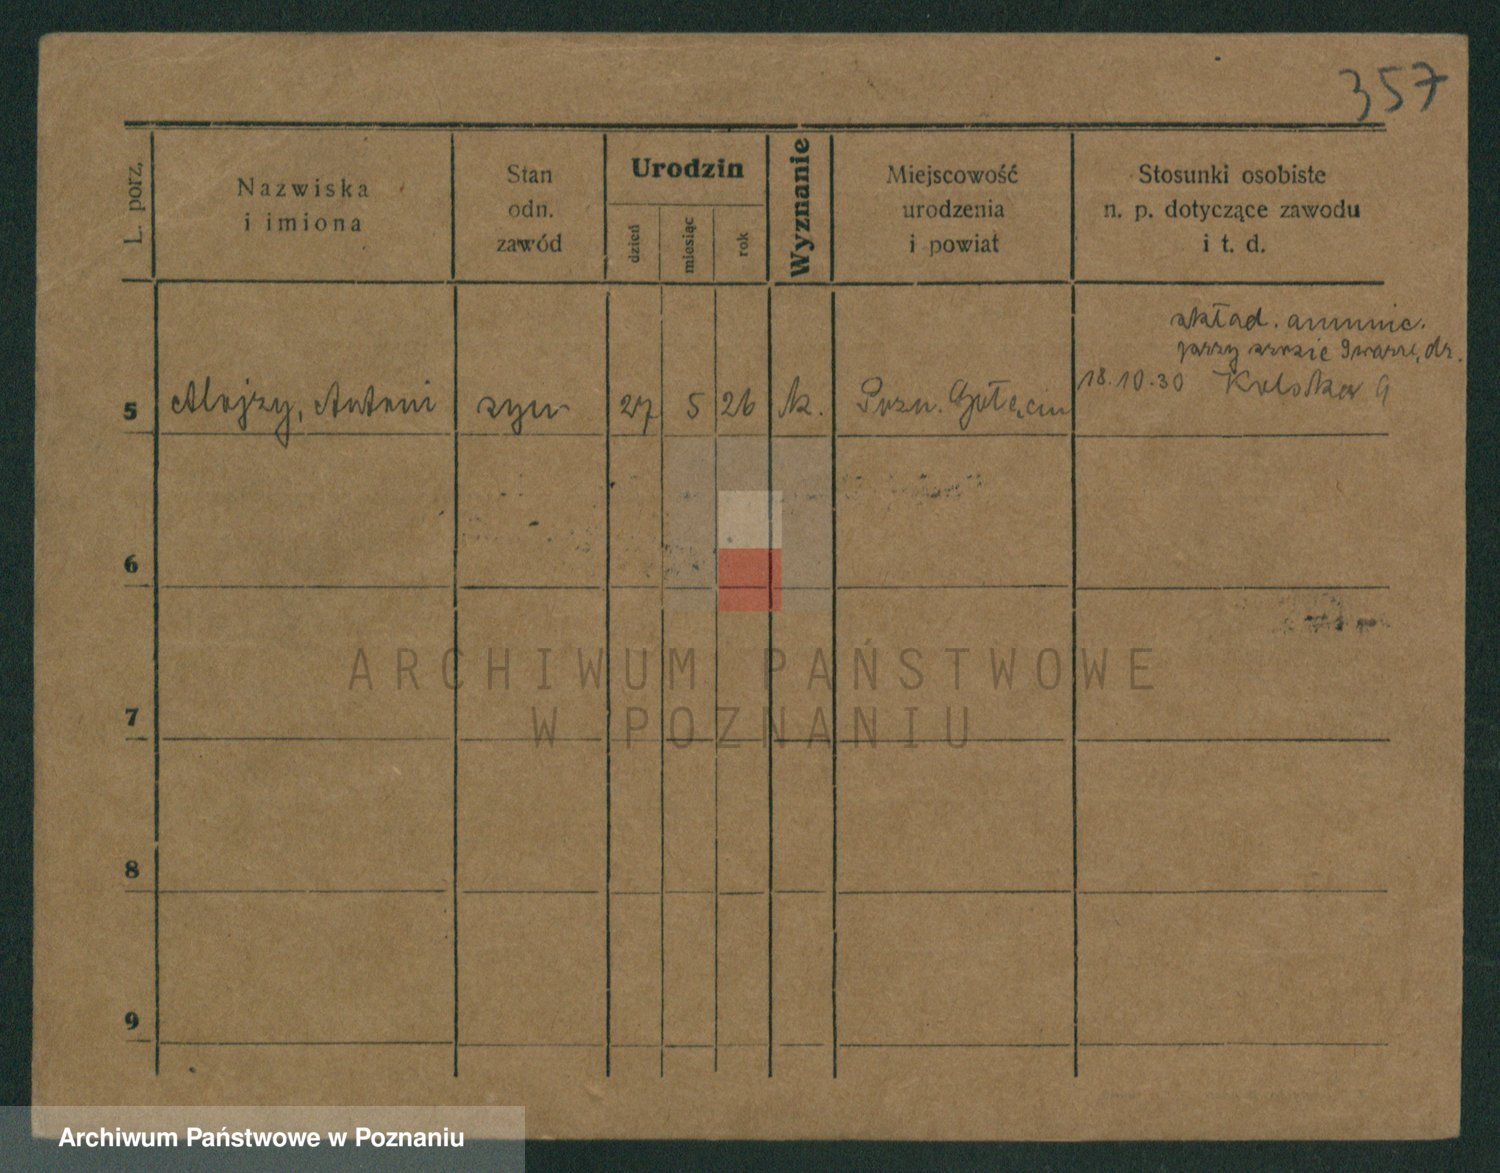 357
L. porz.
Nazwiska
i imiona
Stan
odn.
zawód
Urodzin
dzień
miesiąc
rok
Wyznanie
Miejscowość
urodzenia
i powiat
Stosunki osobiste
n. p. dotyczące zawodu
i t. d.
skład. amunic.
przy szosie
18.10.30
5 Alojzy, Antoni syn 27 5 26 k. Pozn. Gołęcin
6
7
8
9
ARCHIWUM PAŃSTWOWE
W POZNANIU
Archiwum Państwowe w Poznaniu